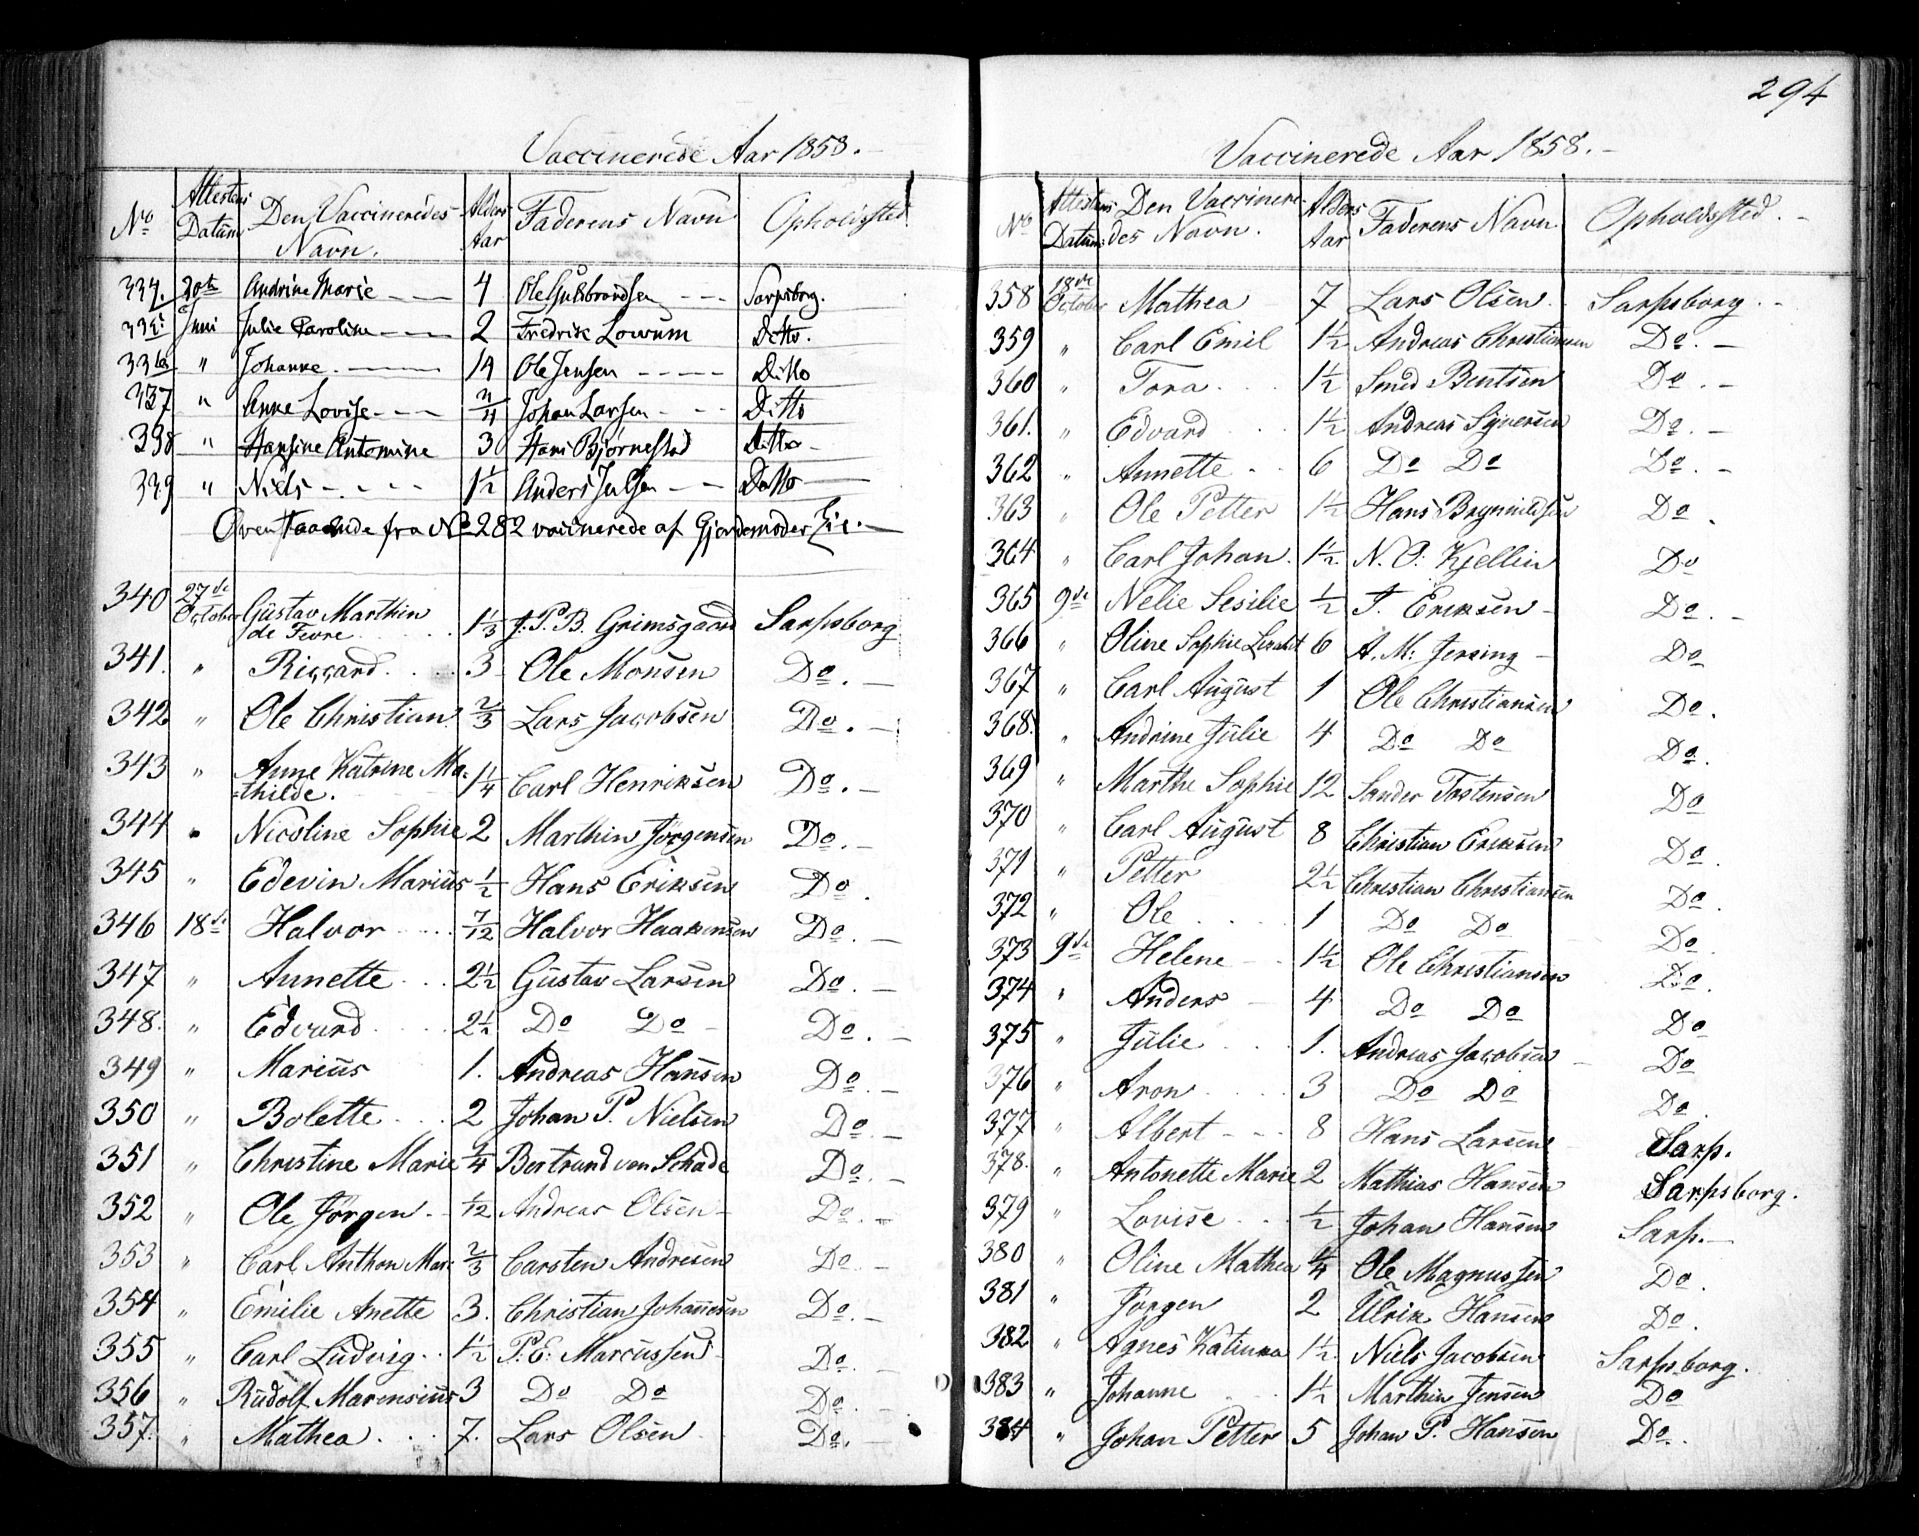 294
Vaccinerede Aar 1858.
No Attestens Datum Den Vaccineredes Navn. Alders Aar Faderens Navn Opholdsted
334. 20te Juni Andrine Marie 4 Ole Gulbrandsen Sarpsborg.
335 Julie Caroline 2 Fredrik Lowum Ditto.
336 " Johanne. 14 Ole Jensen Ditto
337 " Anne Lovise 3/4 Johan Larsen Ditto
338 " Hansine Antomine 3 Hans Bjørnestad ditto
339 " Niels 1½ Anders Julsen Ditto
Ovenstaaende fra No 282 vaccinerede af Gjordemoder
340 27de October Gustav Marthin de Fevre 1⅓ J. P. B. Grimsgaard Sarpsborg
341. " Riccard. 3 Ole Monsen Do.
342 " Ole Christian 2/3 Lars Jacobsen Do.
343 " Anne Katrine Ma=
=thilde. 1¼ Carl Henriksen Do.
344 " Nicoline Sophie 2 Marthin Jörgensen Do.
345 " Edevin Marius ½ Hans Eriksen Do.
346 18de Halvor 7/12 Halvor Haakensen Do.
347 " Annette 2½ Gustav Larsen Do.
348. " Edvard 2½ Do Do Do.
349 " Marius 1. Andreas Hansen Do.
350 " Bolette 2 Johan P. Nielsen Do.
351 " Christine Marie Bertrand von Schade Do.
352 " Ole Jörgen Andreas Olsen Do.
353 " Carl Anthon Mar: 2/3 Carsten Andresen Do.
354 " Emilie Anette 3. Christian Johannesen Do.
355 " Carl Ludvig 1½ P. E. Marcussen Do.
356 " Rudolf Marensius 3 Do Do Do.
357. " Mathea 7. Lars Olsen Do.
Vaccinerede Aar 1858.
No Attestens Datum: Den Vaccinere
des Navn. Alders Aar Faderens Navn Opholdssted.
358 18de October Mathea 7 Lars Olsen Sarpsborg.
359 " Carl Emil 1½ Andreas Christiansen Do.
360 " Tora 1½ Smed Bentsen Do.
361. " Edvard 1½ Andreas Syversen Do.
362 " Annette 6 Do Do Do.
363 " Ole Petter 1½ Hans Brynnildsen Do.
364 " Carl Johan. 1½ N. O. Kjellin Do
365 9de Nelie Sesilie ½ T. Eriksen Do.
366 " Oline Sophie 6 A. M: Jersing Do
367 " Carl August 1 Ole Christiansen Do.
368. " Andrine Julie 4 Do Do Do.
369 " Marthe Sophie 12 Sander Tostensen Do
370 " Carl August 8 Christian Eriksen Do.
371 " Petter 2½ Christian Christiansen Do.
372 " Ole 1 Do Do Do
373 9de Helene 1½ Ole Christiansen Do.
374 " Anders 4 Do Do Do
375 " Julie 1. Andreas Jacobsen Do
376 " Aron 3 Do Do Do.
377 " Albert 8 Hans Larsen Sarp.
378. " Antonette Marie 2 Mathias Hansen Sarpsborg.
379 " Lovise ½ Johan Hansen Sarp.
380 " Oline Mathea Ole Magnussen Do.
381 " Jörgen 2 Ulrik Hansen Do.
382 " Agnes Katinka 1½ Niels Jacobsen Sarpsborg.
383 " Johanne 1½ Marthin Jensen Do
384 " Johan Petter 5 Johan P. Hansen Do.